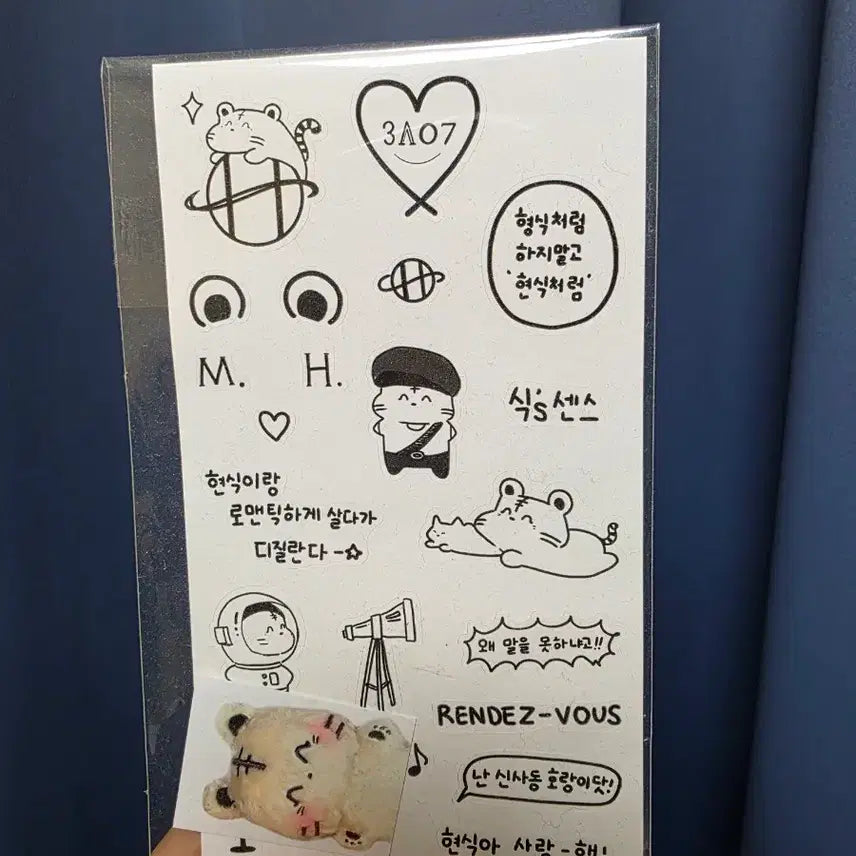 3A07
형식처럼
하지말고
'현식처럼'
M. H.
식's 센스
현식이랑
로맨틱하게 살다가
디질란다-☆
왜 말을 못하냐고!!
RENDEZ-VOUS
난 신사동 호랑이닷!
현식아 사랑-해!